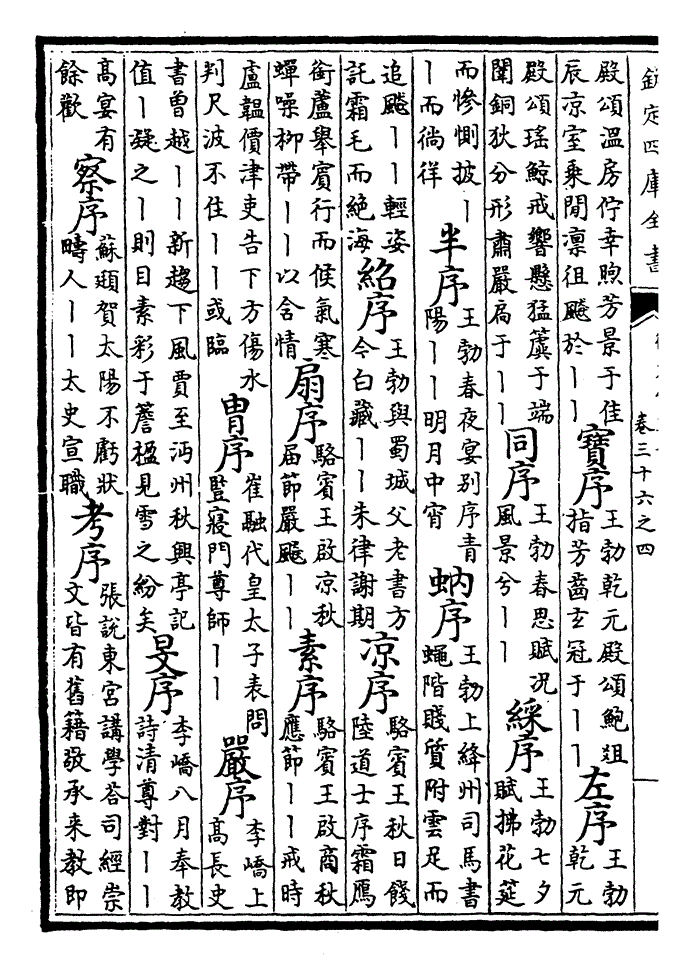 欽定四庫全書
卷三十六之四
殿頌溫房佇幸煦芳景于佳
辰凉室乗閒凛徂飈於丨丨
寶序
王勃乾元殿頌鮑俎
指芳齒玄冠于丨丨
左序
王勃
乾元
殿頌瑤鯨戒響懸猛簴于端
闈銅狄分形肅嚴扃于丨丨
同序
王勃春思賦况
風景兮丨丨
綵序
王勃七夕
賦拂花莚
而惨惻披丨
丨而徜徉
半序
王勃春夜宴别序青
陽丨丨明月中宵
蚋序
王勃上絳州司馬書
蠅階賤質附雲足而
追飈丨丨輕姿
託霜毛而絶海
紹序
王勃與蜀城父老書方
今白藏丨丨朱律謝期
凉序
駱賓王秋日餞
陸道士序霜鴈
銜蘆舉賓行而候氣寒
蟬噪柳帶丨丨以含情
扇序
駱賓王啟凉秋
届節嚴飈丨丨
素序
駱賓王啟商秋
應節丨丨戒時
盧韞價津吏告下方傷水
判尺波不住丨丨或臨
胄序
崔融代皇太子表問
監寝門尊師丨丨
嚴序
李嶠上
髙長史
書曽越丨丨新趨下風賈至沔州秋興亭記
值丨凝之丨則目素彩于簷楹見雪之紛矣
旻序
李嶠八月奉教
詩清尊對丨丨
髙宴有
餘歡
察序
蘇頲賀太陽不虧狀
疇人丨丨太史宣職
考序
張説東宮講學荅司經崇
文皆有舊籍發承来教即